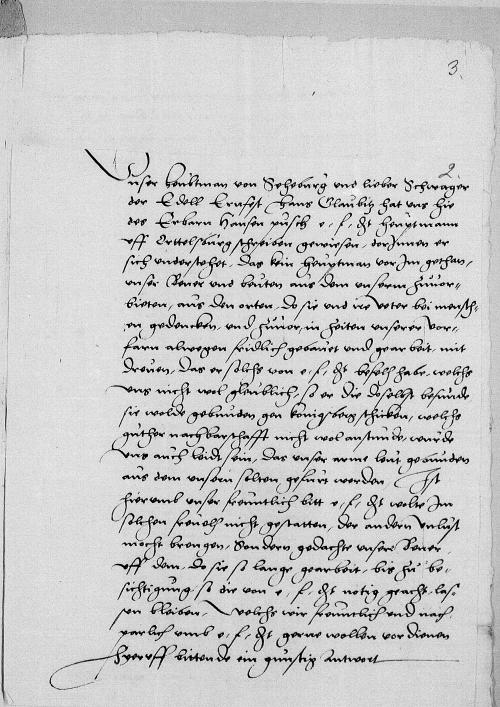 3.
2.
Unser haubtman von Seheburg und lieber Schwager
der Edell Ernfest Hans Glaubitz hat uns hie
des Erbarn Hansen pusch e. f. dt heuptmann
uff Ortelsburg schreiben gewiesen, dorinnen er
sich understehet, das kein heuptman vor im gethan,
unser Bener und beuten aus dem unserm zuvor-
bieten, aus den orten, do sie und ire veter bei mensch-
en gedencken, und zuvor, in zeiten unserer vor-
farn alwegen fridlich gebauet und gearbeit, mit
dreuen, das er solchs von e. f. dt befelh habe, welchs
uns nicht wol gleublich, so er die doselbst befunde
sie wolde gebunden gen konigsberg schicken, welchs
guther nachbarschafft nicht wol anstunde, wurde
uns auch leidt sein, das unser arme leut gebunden
aus dem unsern solten gefurt werden. Ist
hierumb unser freuntlich bitt e. f. dt wolte im
solchen frevels nicht gestatten, der andern unlust
mocht brengen, Sondern gedachte unser Bener
uff dem, do sie so lange gearbeit, bis zu be-
sichtigung, so die von e. f. dt notig geacht, las-
sen bleiben. Welchs wir freuntlich und nach-
parlich umb e. f. dt gerne wollen verdienen
hyeruff bittende ein gunstig Antwort